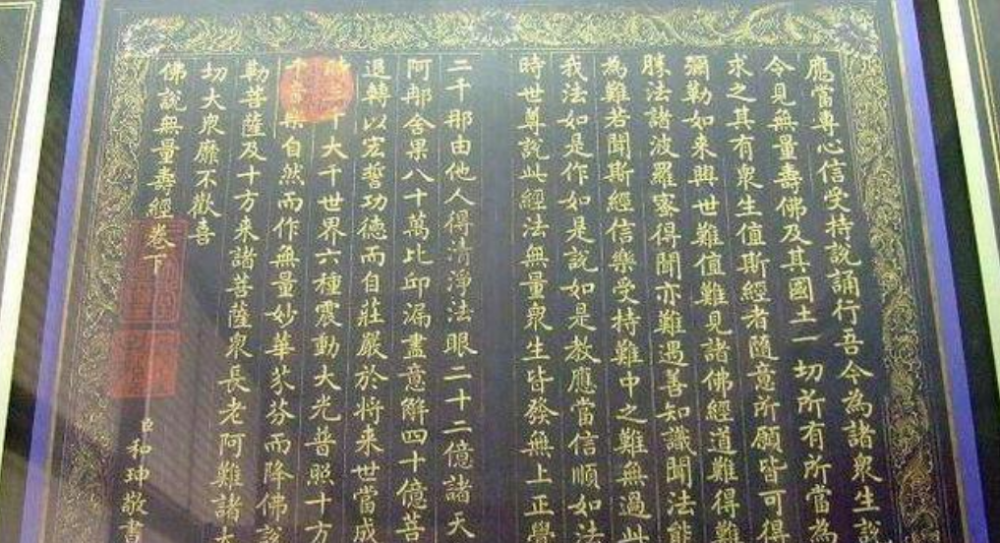 應當專心信受持說誦行吾今為諸衆生說
令見無量壽佛及其國土一切所有所當為
求之其有衆生值斯經者隨意所願皆可得
彌勒如来興世難值難見諸佛經道難得難
勝法諸波羅蜜得聞亦難遇善知識聞法能
為難若聞斯經信樂受持難中之難無過此
我法如是作如是說如是教應當信順如法
時世尊說此經法無量衆生皆發無上正學
二千那由他人得清淨法眼二十二億諸天
阿那舍果八十萬比邱漏盡意解四十億菩
退轉以宏誓功德而自莊嚴於將来世當成
時三千大千世界六種震動大光普照十方
千音樂自然而作無量妙華芬芬而降佛說
勒菩薩及十方来諸菩薩衆長老阿難諸大
切大衆靡不歡喜
佛說無量壽經卷下
臣和珅敬書